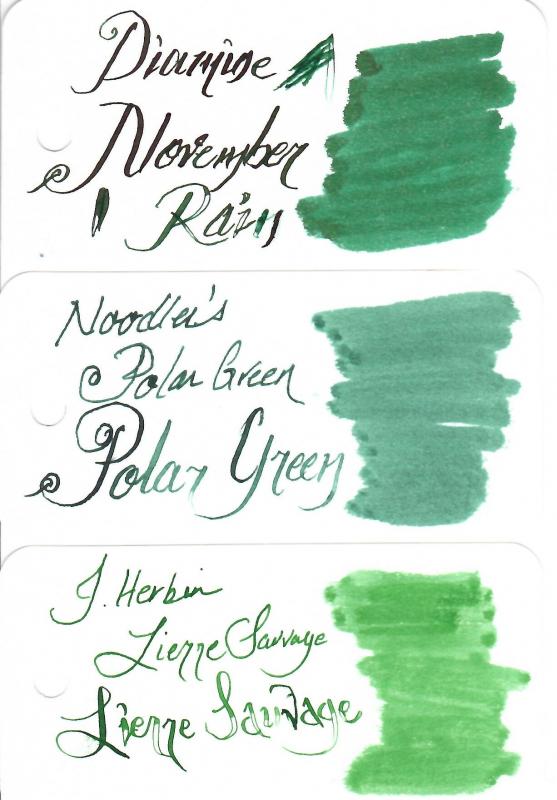 Diamine
November
Rain
Noodler's
Polar Green
Polar Green
J. Herbin
Lierre Sauvage
Lierre Sauvage